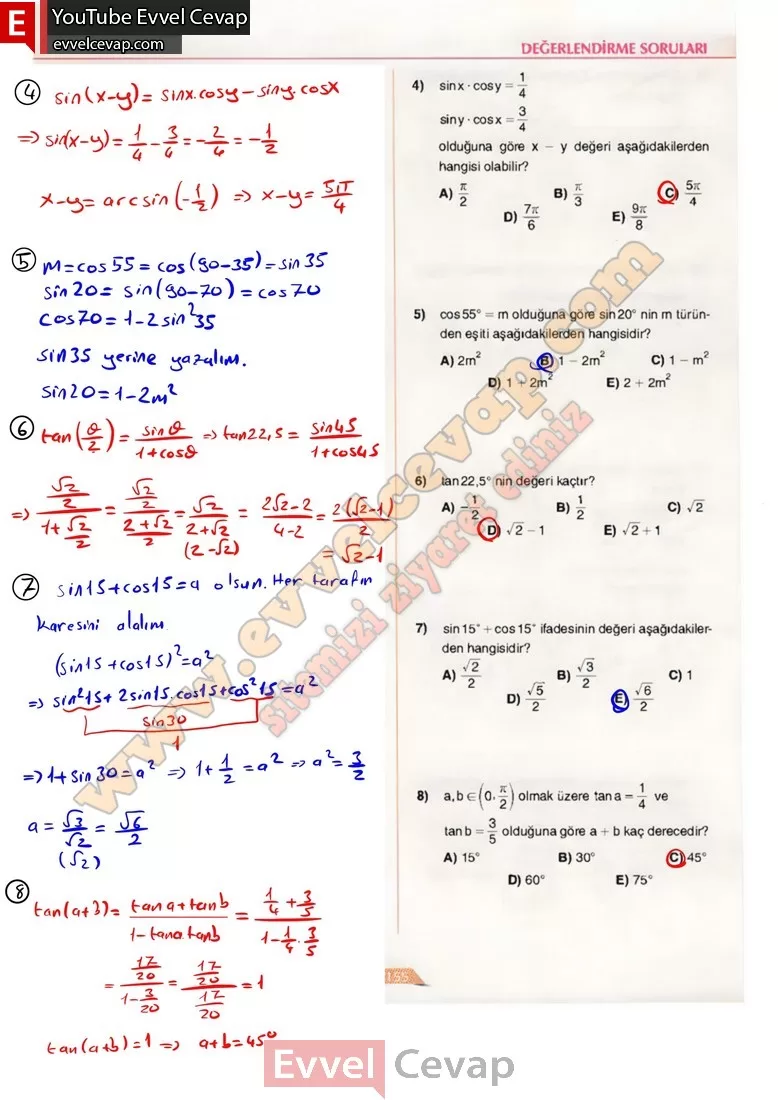 E YouTube Evvel Cevap
evvelcevap.com
DEĞERLENDİRME SORULARI
④ sin(x-y) = sinx.cosy - siny.cosx
⇒ sin(x-y) = 1/4 - 3/4 = -2/4 = -1/2
x-y = arcsin(-1/2) ⇒ x-y = 5π/4
⑤ m = cos55 = cos(90-35) = sin35
sin20 = sin(90-70) = cos70
cos70 = 1-2sin²35
sin35 yerine yazalım.
sin20 = 1-2m²
⑥ tan(θ/2) = sinθ/(1+cosθ) ⇒ tan22,5 = sin45/(1+cos45)
⇒ (√2/2)/(1+√2/2) = (√2/2)/((2+√2)/2) = √2/(2+√2) = (2√2-2)/(4-2) = 2(√2-1)/2
(2-√2)
= √2-1
⑦ sin15+cos15 = a olsun. Her tarafın
karesini alalım
(sin15+cos15)² = a²
⇒ sin²15 + 2sin15.cos15 + cos²15 = a²
sin30
1
⇒ 1+sin30 = a² ⇒ 1+1/2 = a² ⇒ a² = 3/2
a = √3/√2 = √6/2
(√2)
⑧ tan(a+3) = (tana+tanb)/(1-tana tanb) = (1/4+3/5)/(1-1/4.3/5)
= (17/20)/(1-3/20) = (17/20)/(17/20) = 1
tan(a+b) = 1 ⇒ a+b = 45°
4) sinx · cosy = 1/4
siny · cosx = 3/4
olduğuna göre x − y değeri aşağıdakilerden
hangisi olabilir?
A) π/2 B) π/3 C) 5π/4
D) 7π/6 E) 9π/8
5) cos55° = m olduğuna göre sin20° nin m türün-
den eşiti aşağıdakilerden hangisidir?
A) 2m² B) 1 − 2m² C) 1 − m²
D) 1 + 2m² E) 2 + 2m²
6) tan22,5° nin değeri kaçtır?
A) −1/2 B) 1/2 C) √2
D) √2 − 1 E) √2 + 1
7) sin15° + cos15° ifadesinin değeri aşağıdakiler-
den hangisidir?
A) √2/2 B) √3/2 C) 1
D) √5/2 E) √6/2
8) a,b ∈ (0, π/2) olmak üzere tana = 1/4 ve
tanb = 3/5 olduğuna göre a + b kaç derecedir?
A) 15° B) 30° C) 45°
D) 60° E) 75°
155
www.evvelcevap.com
sitemizi ziyaret ediniz
Evvel Cevap